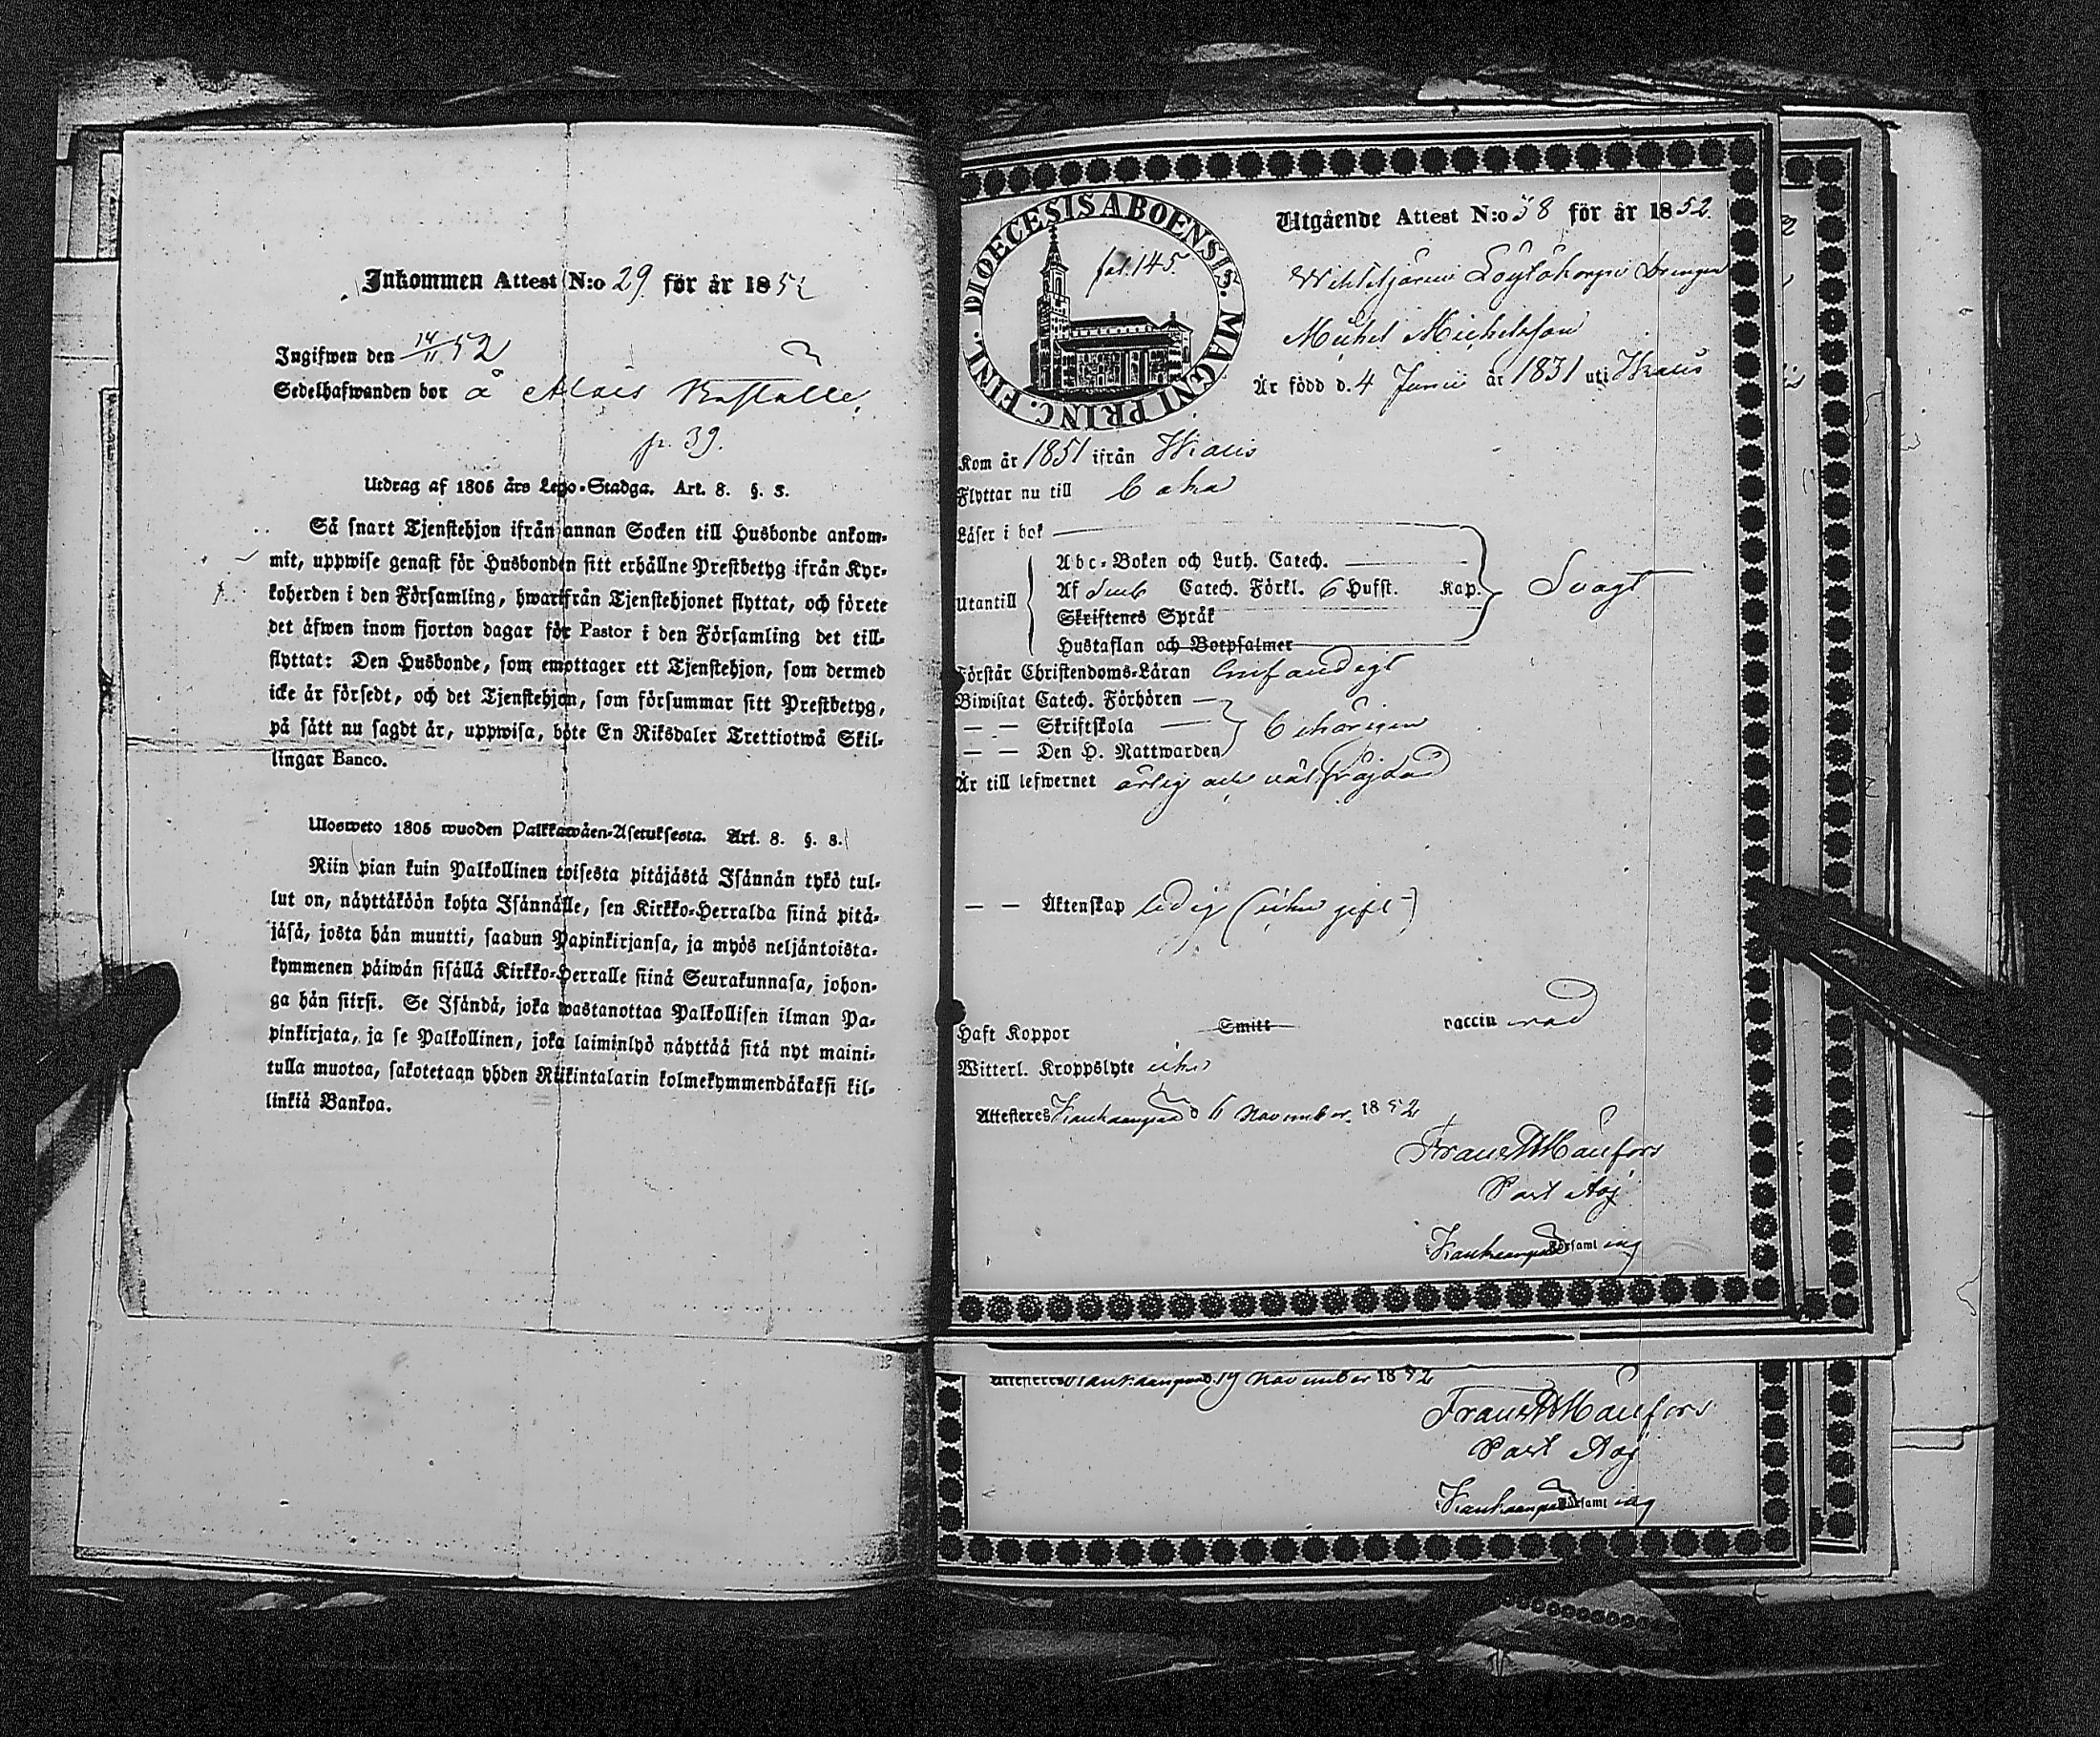 Inkommen Attest N:o 29. för år 1852
Ingifwen den 14/11 52
Sedelhafwanden bor å
p. 39.
Utdrag af 1805 års Lego-Stadga. Art. 8. §. 3.
Så snart Tjenstehjon ifrån annan Socken till Husbonde ankom-
mit, uppwise genast för Husbonden sitt erhållne Prestbetyg ifrån Kyr-
koherden i den Församling, hwarifrån Tjenstehjonet flyttat, och förete
det äfwen inom fjorton dagar för Pastor i den Församling det till-
flyttat: Den Husbonde, som emottager ett Tjenstehjon, som dermed
icke är försedt, och det Tjenstehjon, som försummar sitt Prestbetyg,
på sätt nu sagdt är, uppwisa, böte En Riksdaler Trettiotwå Skil-
lingar Banco.
Ulosweto 1805 wuoden Palkkawäen-Asetuksesta. Art. 8. §. 3.
Niin pian kuin Palkollinen toisesta pitäjästä Isännän tykö tul-
lut on, näyttäköön kohta Isännälle, sen Kirkko-Herralda siinä pitä-
jäsä, josta hän muutti, saadun Papinkirjansa, ja myös neljäntoista-
kymmenen päiwän sisällä Kirkko-Herralle siinä Seurakunnasa, johon-
ga hän siirsi. Se Isändä, joka wastanottaa Palkollisen ilman Pa-
pinkirjata, ja se Palkollinen, joka laiminlyö näyttää sitä nyt maini-
tulla muotoa, sakotetaan yhden Riikintalarin kolmekymmendäkaksi kil-
linkiä Bankoa.
DIOECESIS ABOENSIS. MAGNI PRINC. FINL.
fol. 145.
Utgående Attest N:o 38 för år 1852.
Drengen
Michel Michelsson
Är född d. 4 Junii år 1831 uti
Kom år 1851 ifrån
Flyttar nu till
Läser i bok
Utantill
Abc-Boken och Luth. Catech.
Af Catech. Förkl. 6 Hufst. Kap.
Skriftenes Språk
Hustaflan och Botpsalmer
Svagt
Förstår Christendoms-Läran
Biwistat Catech. Förhören
— — Skriftskola
— — Den H. Nattwarden
behörigen
Är till lefwernet ärlig och välfrägdad
— — Äktenskap ledig (icke gift)
Haft Koppor Smitt vaccin
Witterl. Kroppslyte icke
Attesteres Kankaanpää d 6 November 1852
Frans Manfors
Past Adj
i Kankaanpää Församling
Attesteres Kankaanpää d. 19 November 1852
Frans Manfors
Past Adj
i Kankaanpää Församling